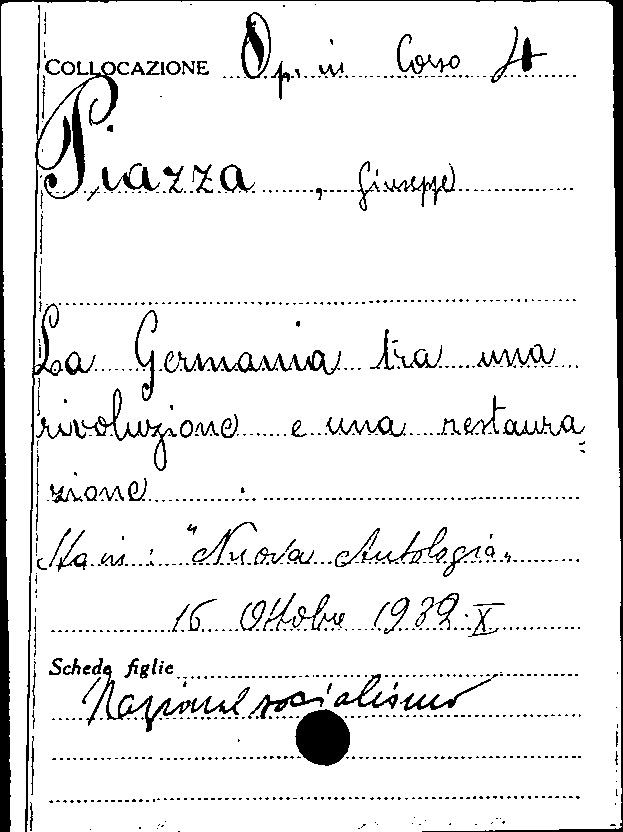 COLLOCAZIONE Op. in Corso 4
Piazza, Giuseppe
La Germania tra una
rivoluzione e una restaura=
zione.
Sta in: "Nuova Antologia"
16 Ottobre 1932. X
Schede figlie
Nazionalsocialismo